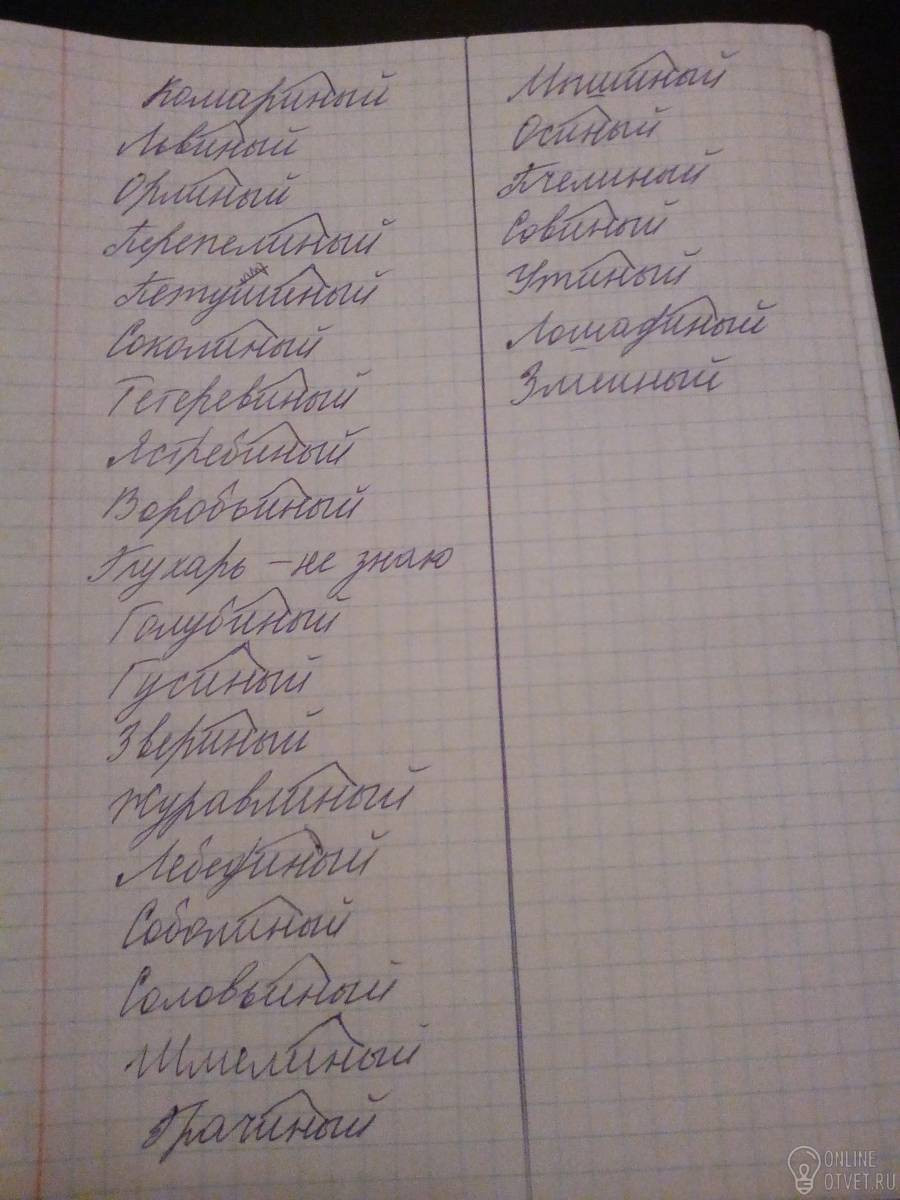 Комариный
Львиный
Орлиный
Перепелиный
Петушиный
Соколиный
Тетеревиный
Ястребиный
Воробьиный
Глухарь - не знаю
Голубиный
Гусиный
Звериный
Журавлиный
Лебединый
Соболиный
Соловьиный
Шмелиный
Грачиный
Мышиный
Осиный
Пчелиный
Совиный
Утиный
Лошадиный
Змеиный
ONLINE
OTVET.RU